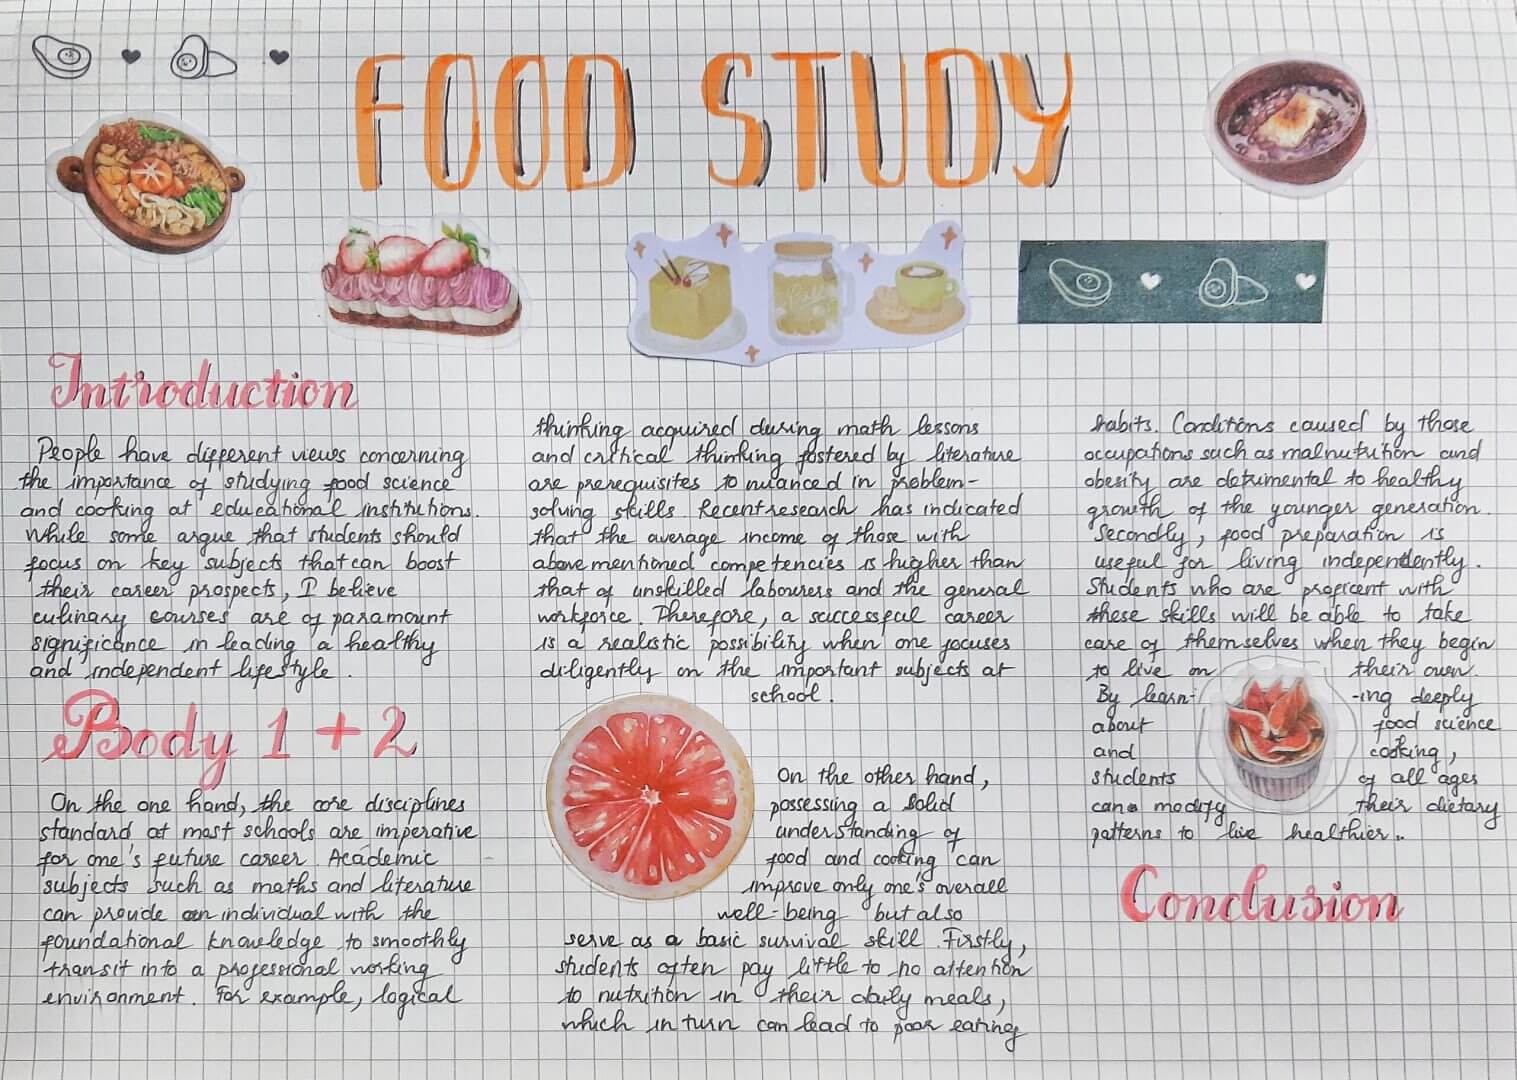 FOOD STUDY
Introduction
People have different views concerning
the importance of studying food science
and cooking at educational institutions.
While some argue that students should
focus on key subjects that can boost
their career prospects, I believe
culinary courses are of paramount
significance in leading a healthy
and independent lifestyle.
Body 1 + 2
On the one hand, the core disciplines
standard at most schools are imperative
for one's future career. Academic
subjects such as maths and literature
can provide an individual with the
foundational knowledge to smoothly
transit into a professional working
environment. For example, logical
thinking acquired during math lessons
and critical thinking fostered by literature
are prerequisites to nuanced in problem-
solving skills. Recent research has indicated
that the average income of those with
abovementioned competencies is higher than
that of unskilled labourers and the general
workforce. Therefore, a successful career
is a realistic possibility when one focuses
diligently on the important subjects at
school.
On the other hand,
possessing a solid
understanding of
food and cooking can
improve only one's overall
well-being but also
serve as a basic survival skill. Firstly,
students often pay little to no attention
to nutrition in their daily meals,
which in turn can lead to poor eating
habits. Conditions caused by those
occupations such as malnutrition and
obesity are detrimental to healthy
growth of the younger generation.
Secondly, food preparation is
useful for living independently.
Students who are proficent with
these skills will be able to take
care of themselves when they begin
to live on their own.
By learn- -ing deeply
about food science
and cooking,
students of all ages
can modify their dietary
patterns to live healthier..
Conclusion